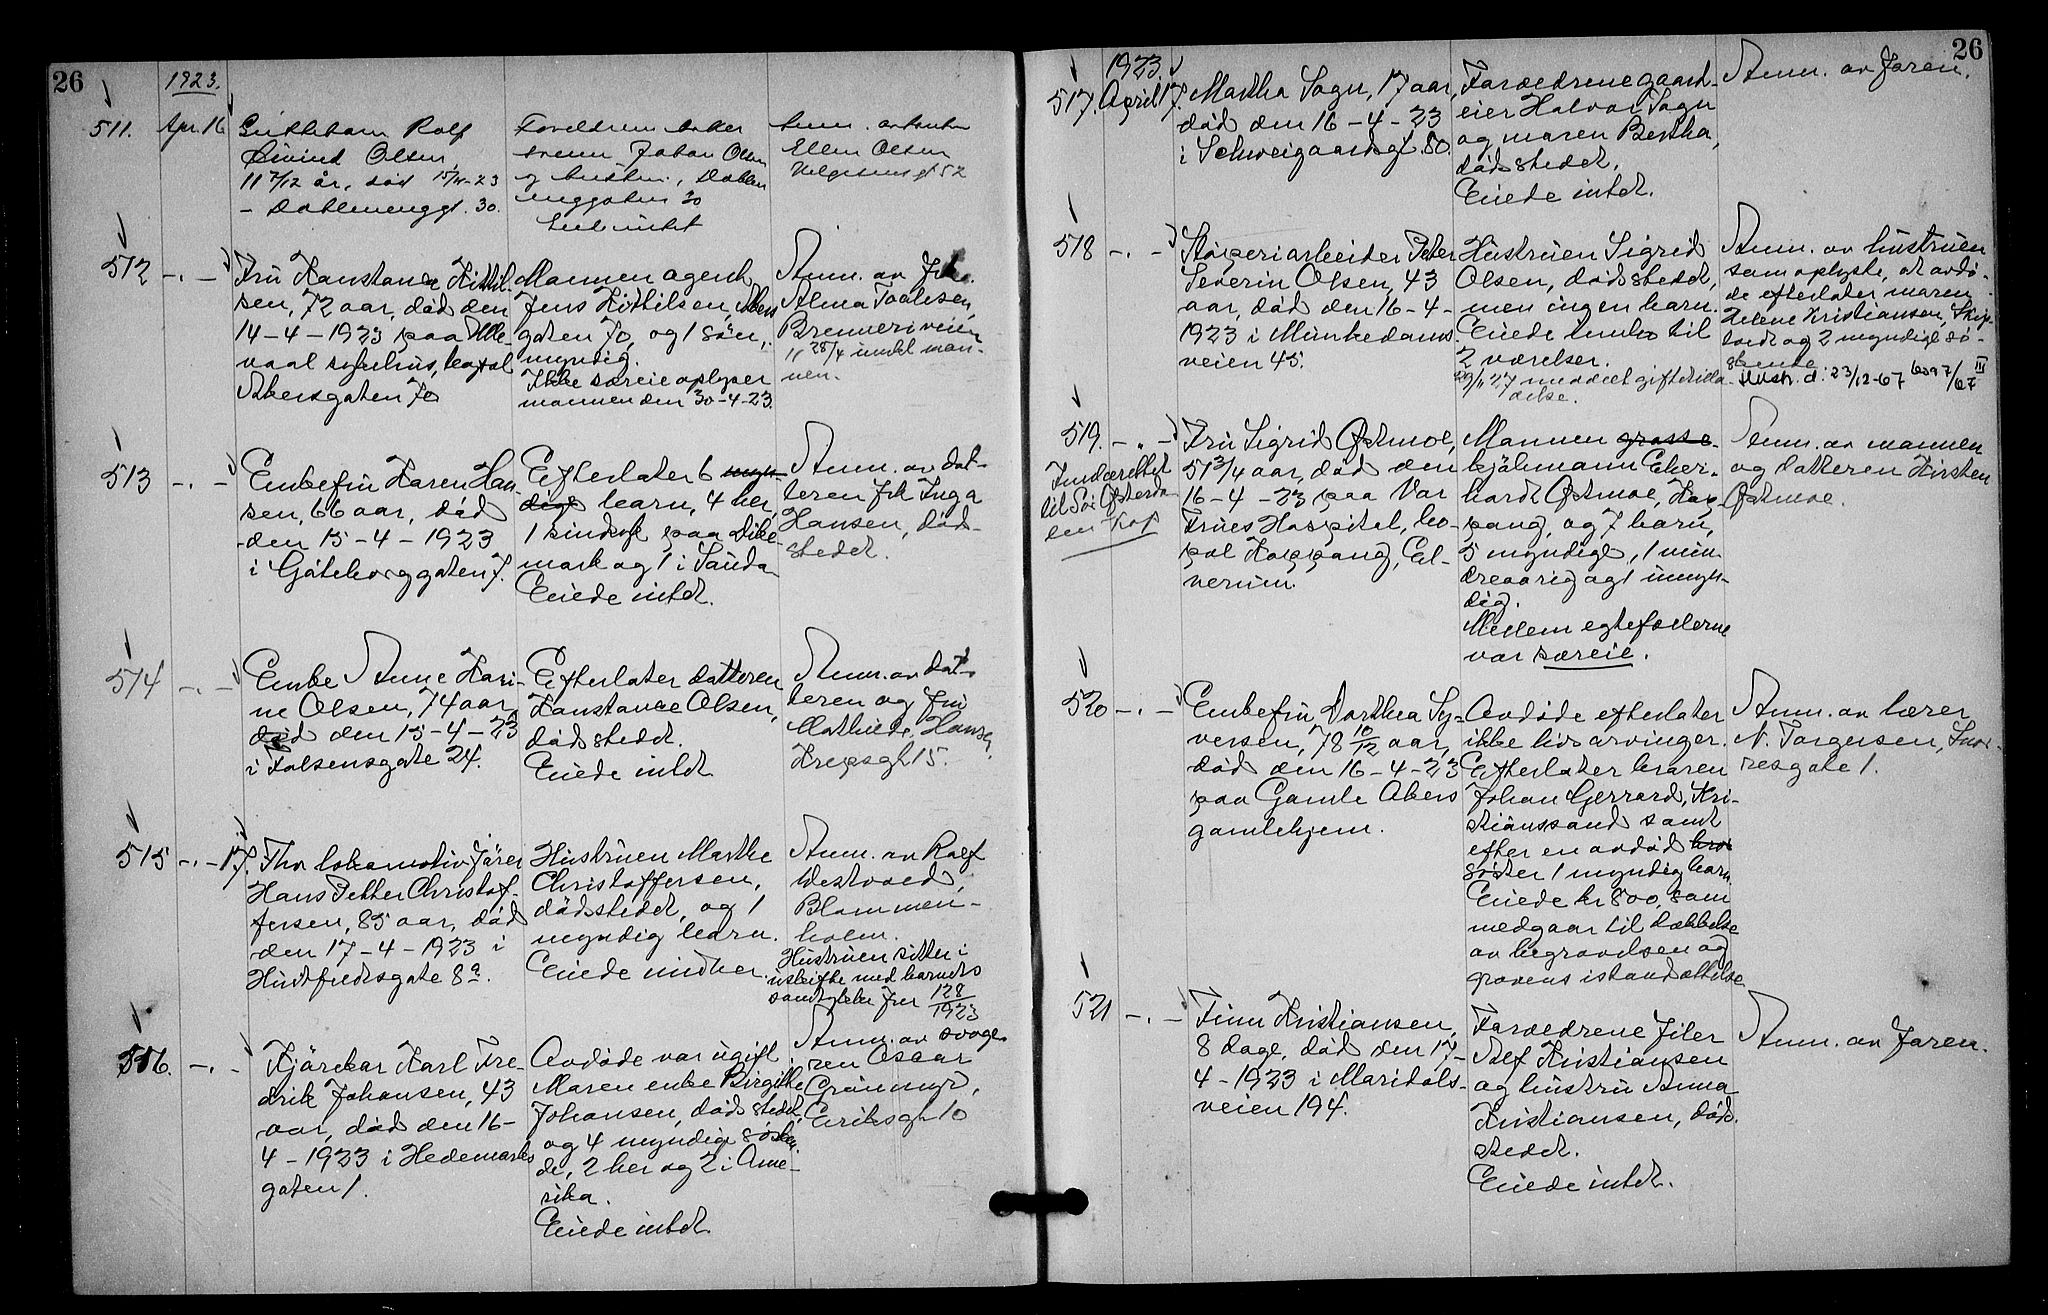 26
1923.
511. Apr. 16
Guttebarn Rolf
Øivind Olsen,
11 7/12 år, død 15/4-23
- Dahlenenggt. 30.
Foreldrene
Johan Olsen
og hustru, Dahlen
enggaten 30
Eied intet
Anm. av
Ellen Olsen
Helgesensgt 52
512 -.-
Fru Konstance Kittil-
sen, 72 aar, død den
14-4-1923 paa Ulle-
vaal sykehus, bopæl
Akersgaten 70
Mannen agent
Jens Kittilsen, Akers
gaten 70, og 1 søn,
myndig.
Ikke særeie oplyser
mannen den 30-4-23.
Anm. av Frk.
Alma Paulsen,
Brenneriveien
11 28/4 inmkl man-
nen.
513 -.-
Enkefru Karen Han
sen, 66 aar, død
den 15-4-1923
i Göteborggaten 7.
Efterlater 6 myn-
dige barn, 4 her,
1 sindssyk paa Dike-
mark og 1 i Sauda
Eiede intet.
Anm. av dat-
teren frk Inga
Hansen, død-
stedet.
514 -.-
Enke Anne Kari-
ne Olsen, 74 aar,
død den 15-4-23
i Falsensgate 24.
Efterlater datteren
Konstance Olsen,
dødsstedet.
Eiede intet
Anm. av dat-
teren og fru
Mathilde Hansen,
Krepsgt 15.
515 -.- 17.
Fhv lokomotivfører
Hans Petter Christof-
fersen, 85 aar, død
den 17-4-1923 i
Huitfeldtsgate 8a.
Hustruen Marthe
Christoffersen,
dødsstedet, og 1
myndig barn.
Eiede midler.
Anm. av Rolf
Westvold,
Blommen-
holm.
Hustruen sitter i
uskifte med barnets
samtykke Jnr 128/1923
516. -.-
Kjørekar Karl Fre-
drik Johansen, 43
aar, død den 16-
4-1923 i Hedemarks
gaten 1.
Avdøde var ugift
Moren enke Birgitte
Johansen, dødsstedet,
og 4 myndige søsken
de, 2 her og 2 i Ame-
rika.
Eiede intet.
Anm. av svoge-
ren Oscar
Grønmyr,
Eriksgt 10
26
1923.
517. April 17.
Martha Sogn, 17 aar,
død den 16-4-23
i Schweigaardsgt. 80.
Forældrene gaard-
eier Halvor Sogn
og maren Bertha,
dødsstedet.
Eiede intet.
Anm. av faren.
518 -.-
Støperiarbeider Peter
Severin Olsen, 43
aar, død den 16-4-
1923 i Munkedams
veien 45.
Hustruen Sigrid
Olsen, dødsstedet,
men ingen barn.
Eiede innbo til
2 værelser.
29/11 27 meddelt giftetilla-
delse.
Anm. av hustruen
som oplyste, at avdø-
de efterlater moren
Helene Kristiansen, Skip-
tvedt og 2 myndige sø-
skende
Hustr. d. 23/12-67 6097/67 III
519. -.-
til Sør Østerda
len
Fru Sigrid Østmoe,
51 3/4 aar, død den
16-4-23 paa Vor
Frues Hospital, bo-
pæl Koppang, El-
verum.
Mannen grosse-
kjøbmann Eber-
hardt Østmoe, Kop-
pang, og 7 barn,
5 myndige, 1 min
dreaarig og 1 umyn-
dig.
Mellem egtefællerne
var særeie.
Anm. av mannen
og datteren Kirsten
Østmoe.
520 -.-
Enkefru Dorthea Sy-
versen, 78 10/12 aar,
død den 16-4-23
paa Gamle Akers
gamlehjem.
Avdøde efterlater
ikke livsarvinger.
Efterlater broren
Johan Gerrard, Kri-
stianssand samt
efter en avdød bro
søster 1 myndig barn.
Eiede kr 800, som
medgaar til dækkelse
av begravelsen og
gravens istandsættelse
Anm. av lærer
N. Torgersen, Snor-
resgate 1.
521 -.-
Finn Kristiansen,
8 dage, død den 17-
4-1923 i Maridals-
veien 194.
Forældrene filer
Alf Kristiansen
og hustru Anna
Kristiansen, død-
stedet.
Eiede intet.
Anm. av faren.